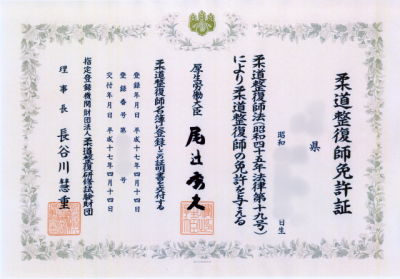 柔道整復師免許証
県
昭和
日生
柔道整復師法(昭和四十五年法律第十九号)
により柔道整復師の免許を与える
厚生労働大臣 尾辻秀久
柔道整復師名簿に登録しこの証明書を交付する
登録年月日 平成十七年四月十四日
登録番号 第 号
交付年月日 平成十七年四月十四日
指定登録機関財団法人柔道整復研修試験財団
理事長 長谷川慧重